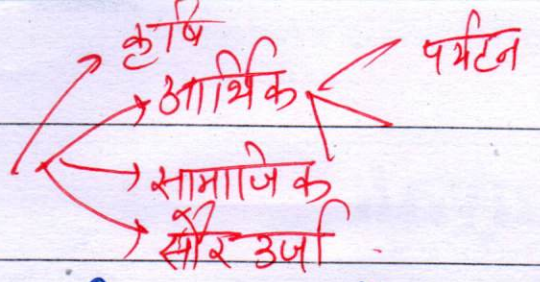 कृषि
आर्थिक पर्यटन
सामाजिक
सौर उर्जा